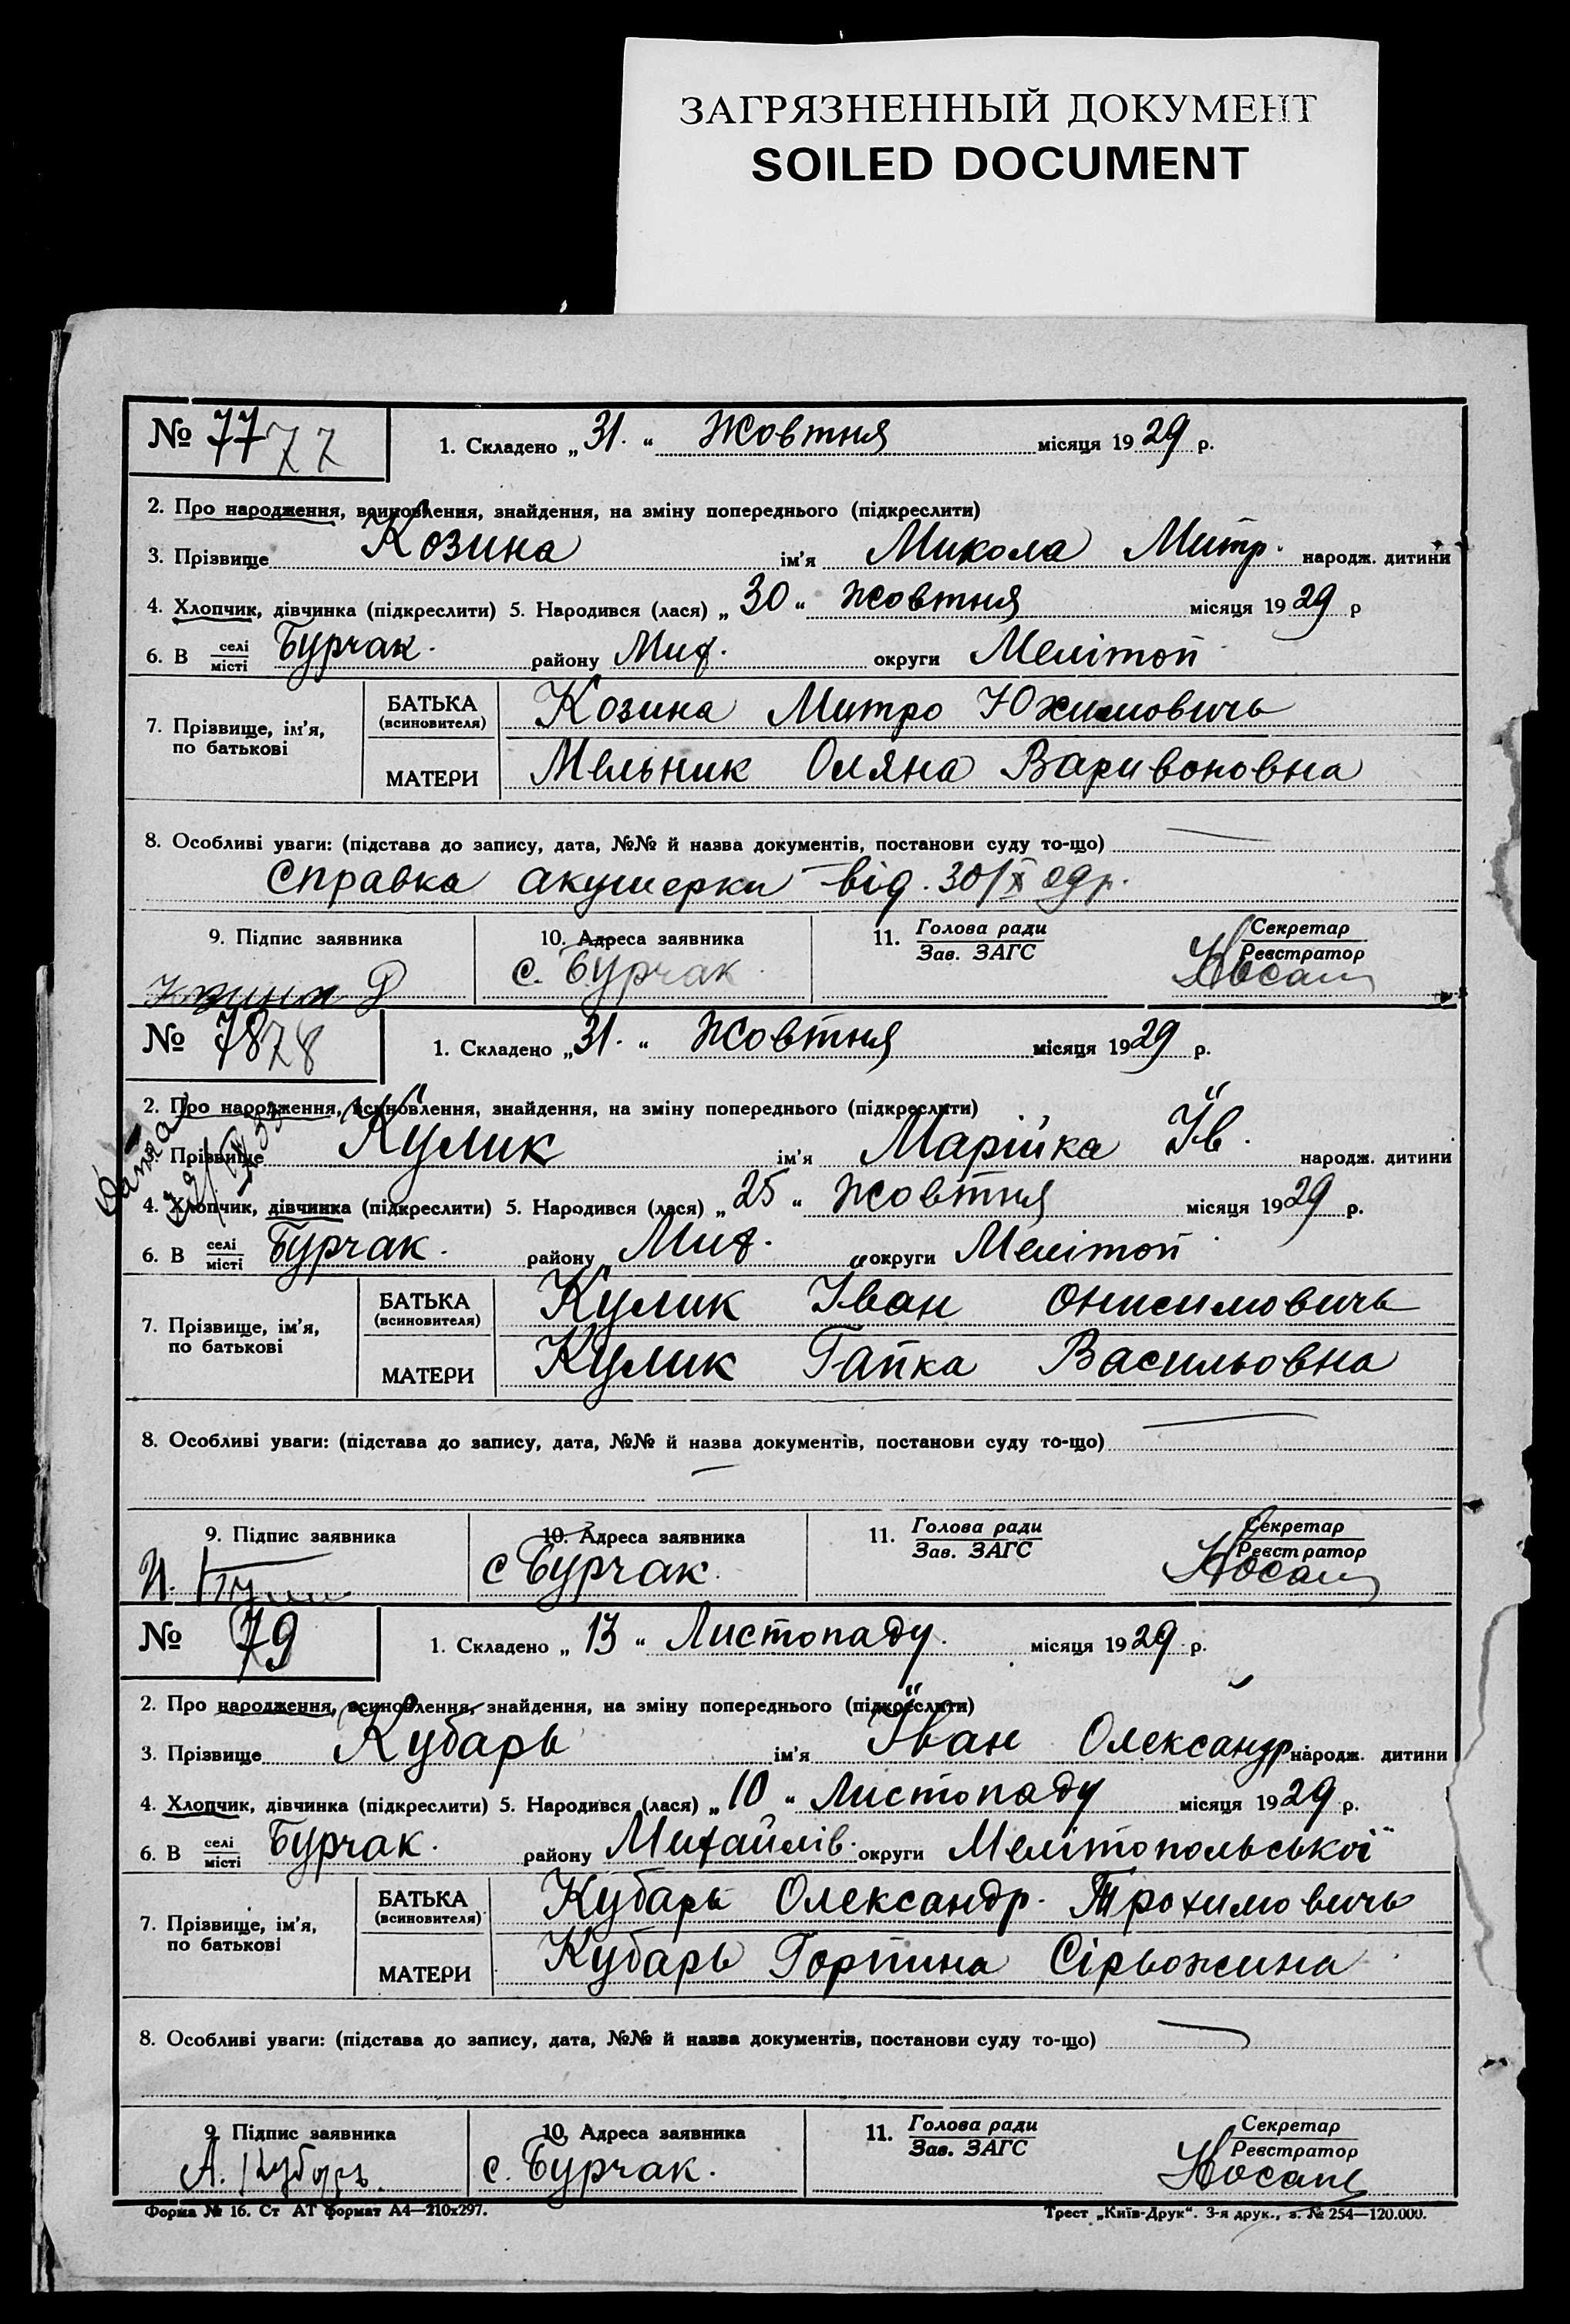 ЗАГРЯЗНЕННЫЙ ДОКУМЕНТ
SOILED DOCUMENT
№ 77 77
1. Складено „31.“ Жовтня місяця 1929 р.
2. Про народження, всиновлення, знайдення, на зміну попереднього (підкреслити)
3. Прізвище Козина ім'я Микола Митр. народж. дитини
4. Хлопчик, дівчинка (підкреслити) 5. Народився (лася) „30“ Жовтня місяця 1929 р
6. В селі місті Бурчак. району Мих. округи Мелітоп
7. Прізвище, ім'я, по батькові
БАТЬКА (всиновителя) Козина Митро Юхимовичь
МАТЕРИ Мельник Оляна Варивоновна
8. Особливі уваги: (підстава до запису, дата, №№ й назва документів, постанови суду то-що)
Справка акушерки від. 30/X
9. Підпис заявника
10. Адреса заявника
11. Голова ради Зав. ЗАГС
Секретар Реєстратор
с. Бурчак Носач
№ 78 78
1. Складено „31.“ Жовтня місяця 1929 р.
2. Про народження, всиновлення, знайдення, на зміну попереднього (підкреслити)
3. Прізвище Кулик ім'я Марійка Ів. народж. дитини
4. Хлопчик, дівчинка (підкреслити) 5. Народився (лася) „25“ Жовтня місяця 1929 р.
6. В селі місті Бурчак. району Мих. округи Мелітоп
7. Прізвище, ім'я, по батькові
БАТЬКА (всиновителя) Кулик Іван Онисимовичь
МАТЕРИ Кулик Гапка Васильовна
8. Особливі уваги: (підстава до запису, дата, №№ й назва документів, постанови суду то-що)
9. Підпис заявника
10. Адреса заявника
11. Голова ради Зав. ЗАГС
Секретар Реєстратор
с Бурчак. Носач
№ 79
1. Складено „13“ Листопаду. місяця 1929 р.
2. Про народження, всиновлення, знайдення, на зміну попереднього (підкреслити)
3. Прізвище Кубарь ім'я Іван Олександр народж. дитини
4. Хлопчик, дівчинка (підкреслити) 5. Народився (лася) „10“ Листопаду місяця 1929 р.
6. В селі місті Бурчак. району Михайлів. округи Мелітопольської
7. Прізвище, ім'я, по батькові
БАТЬКА (всиновителя) Кубарь Олександр. Трохимовичь
МАТЕРИ Кубарь Горпина Сірьожина
8. Особливі уваги: (підстава до запису, дата, №№ й назва документів, постанови суду то-що)
9. Підпис заявника
10. Адреса заявника
11. Голова ради Зав. ЗАГС
Секретар Реєстратор
А. Кубарь. с. Бурчак. Носач
Форма № 16. Ст АТ формат А4—210х297.
Трест „Київ-Друк“. 3-я друк., з. № 254—120.000.